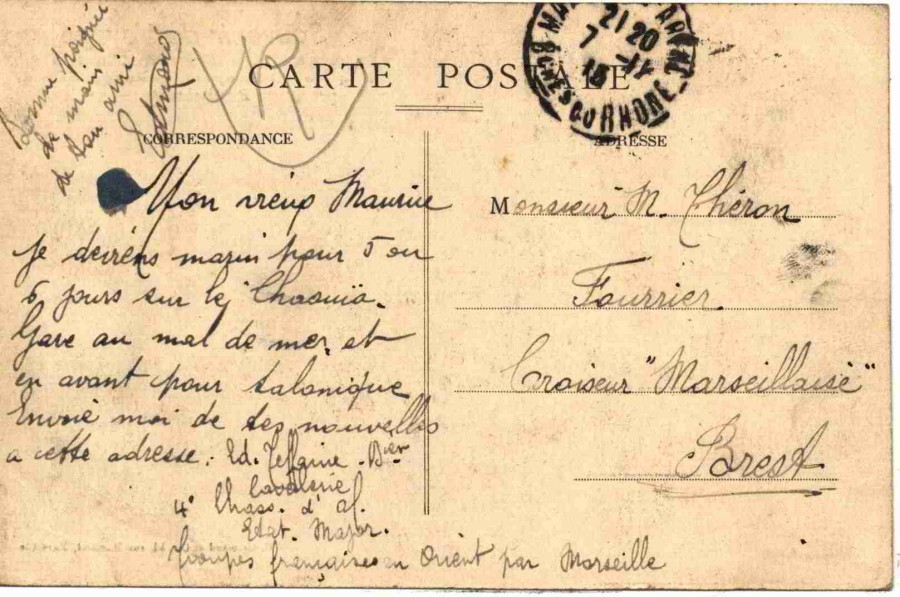 Bonne poignée
de main
de ton ami
Edmond
CARTE POSTALE
21 20
7 - 11
15
BCHES DU RHONE
CORRESPONDANCE
ADRESSE
Mon vieux Maurice
je deviens marin pour 5 ou
6 jours sur le Chaouïa.
Gare au mal de mer et
en avant pour Salonique
Envoie moi de tes nouvelles
a cette adresse: Ed. Bier
Cavalerie
4e Chass. d'Af.
Etat. Major.
Troupes françaises en Orient par Marseille
Monsieur M. Théron
Fourrier
Croiseur "Marseillaise"
Brest